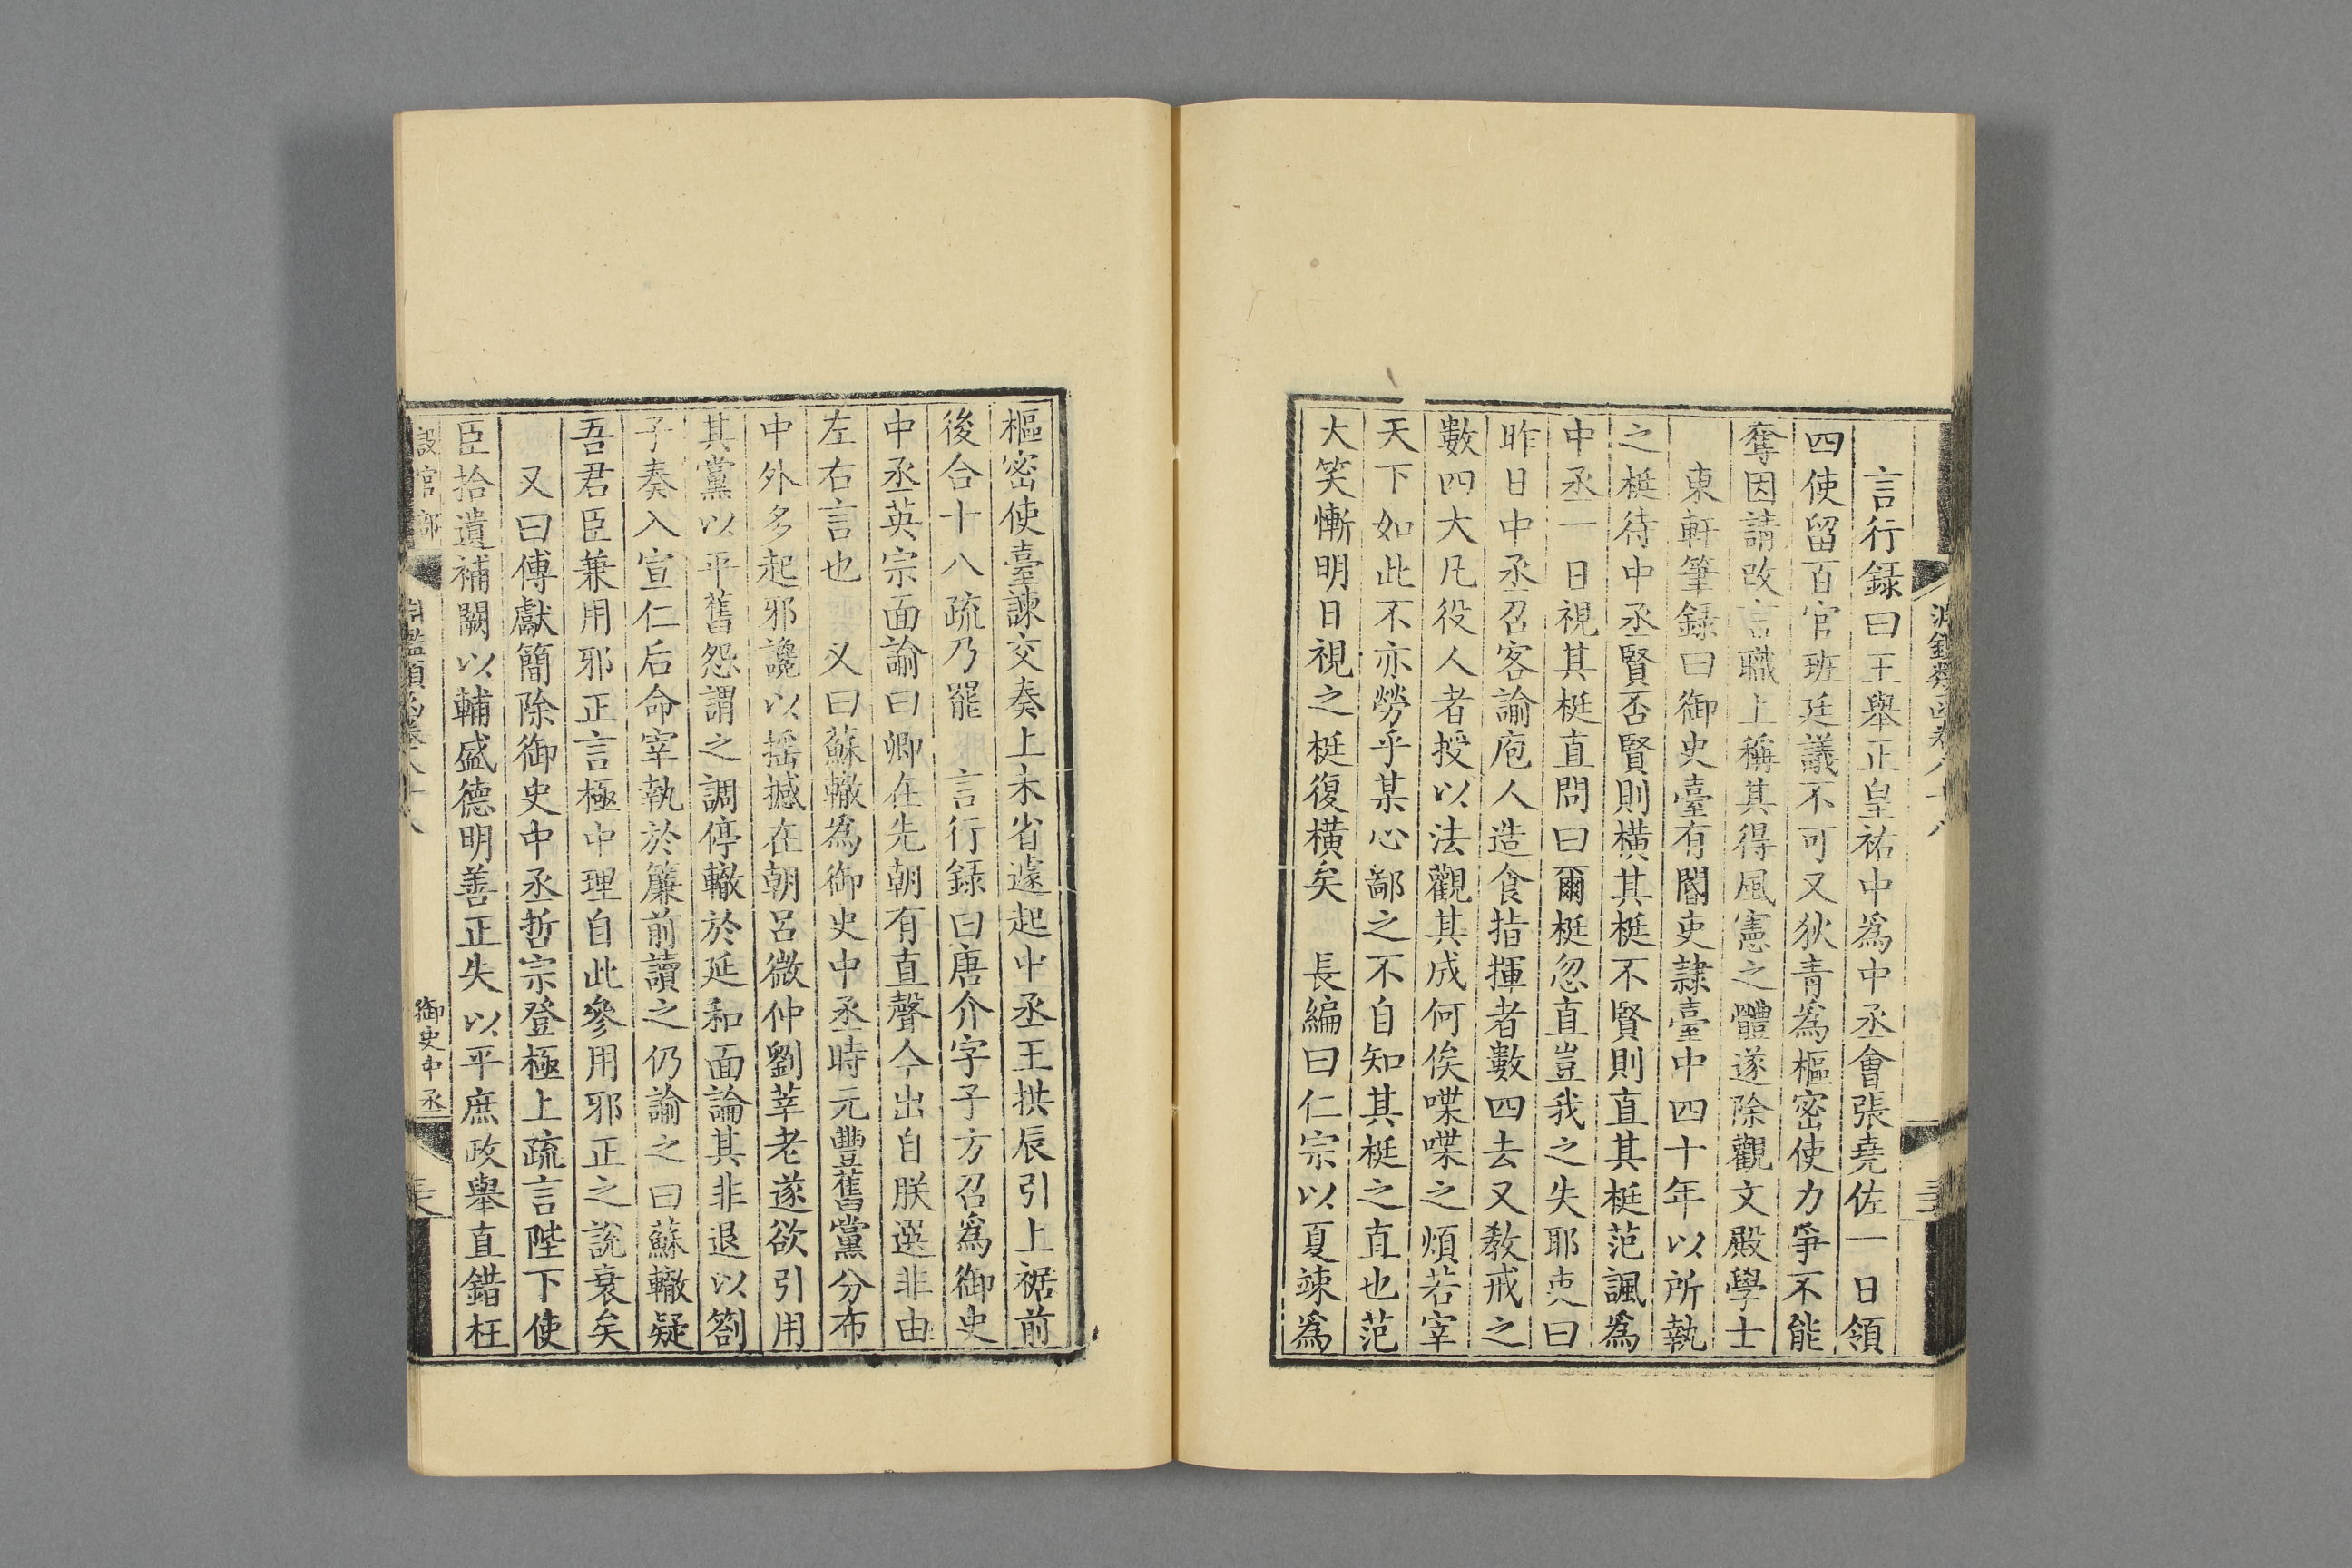 言行録曰王舉正皇祐中爲中丞會張堯佐一日領
四使留百官班廷議不可又狄青爲樞密使力爭不能
奪因請改言職上稱其得風憲之體遂除觀文殿學士
東軒筆録曰御史臺有閽吏隷臺中四十年以所執
之梃待中丞賢否賢則横其梃不賢則直其梃范諷爲
中丞一日視其梃直問曰爾梃忽直豈我之失耶吏曰
昨日中丞召客諭庖人造食指揮者數四去又教戒之
數四大凡役人者授以法觀其成何俟喋喋之煩若宰
天下如此不亦勞乎某心鄙之不自知其梃之直也范
大笑慚明日視之梃復横矣 長編曰仁宗以夏竦爲
樞密使臺諫交奏上未省遽起中丞王拱辰引上裾前
後合十八疏乃罷 言行録曰唐介字子方召爲御史
中丞英宗面諭曰卿在先朝有直聲今出自朕選非由
左右言也 又曰蘇轍爲御史中丞時元豐舊黨分布
中外多起邪讒以揺撼在朝呂微仲劉莘老遂欲引用
其黨以平舊怨謂之調停轍於延和面論其非退以劄
子奏入宣仁后命宰執於簾前讀之仍諭之曰蘇轍疑
吾君臣兼用邪正言極中理自此參用邪正之說衰矣
又曰傅獻簡除御史中丞哲宗登極上疏言陛下使
臣拾遺補闕以輔盛德明善正失以平庶政舉直錯枉
設官部 御史中丞